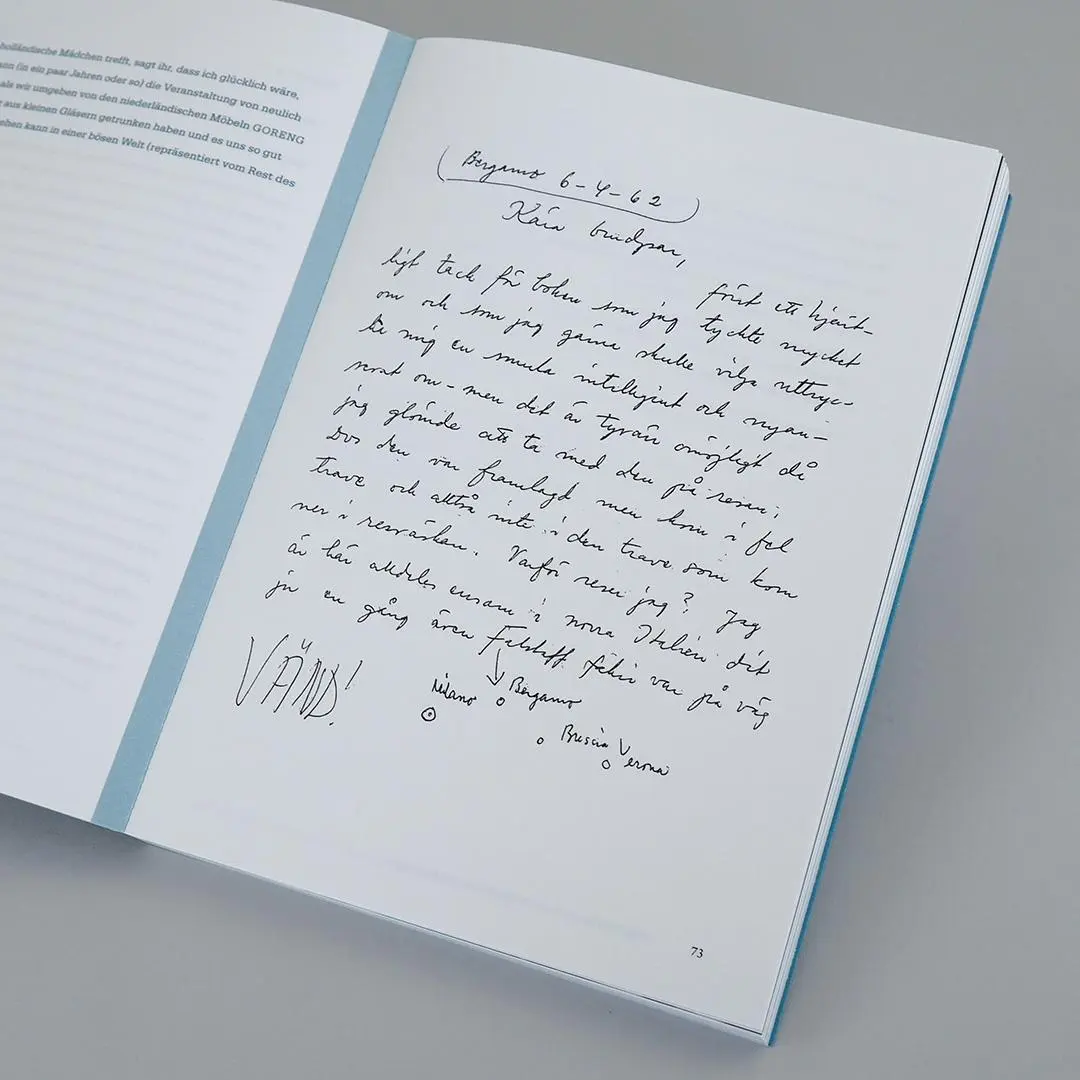 holländische Mädchen trifft, sagt ihr, dass ich glücklich wäre,
ann (in ein paar Jahren oder so) die Veranstaltung von neulich
als wir umgeben von den niederländischen Möbeln GORENG
aus kleinen Gläsern getrunken haben und es uns so gut
ehen kann in einer bösen Welt (repräsentiert vom Rest des
Bergamo 6-4-62
Kära brudpar,
först ett hjärt-
ligt tack för boken som jag tyckte mycket
om och som jag gärna skulle vilja uttryc-
ka mig en smula intelligent och nyan-
serat om - men det är tyvärr omöjligt då
jag glömde att ta med den på resan;
Dvs den var framlagd men kom i fel
trave och alltså inte i den trave som kom
ner i resväskan. Varför reser jag? Jag
är här alldeles ensam i norra Italien dit
ju en gång även Falstaff, fakir var på väg
VÄND!
Milano Bergamo
Brescia Verona
73